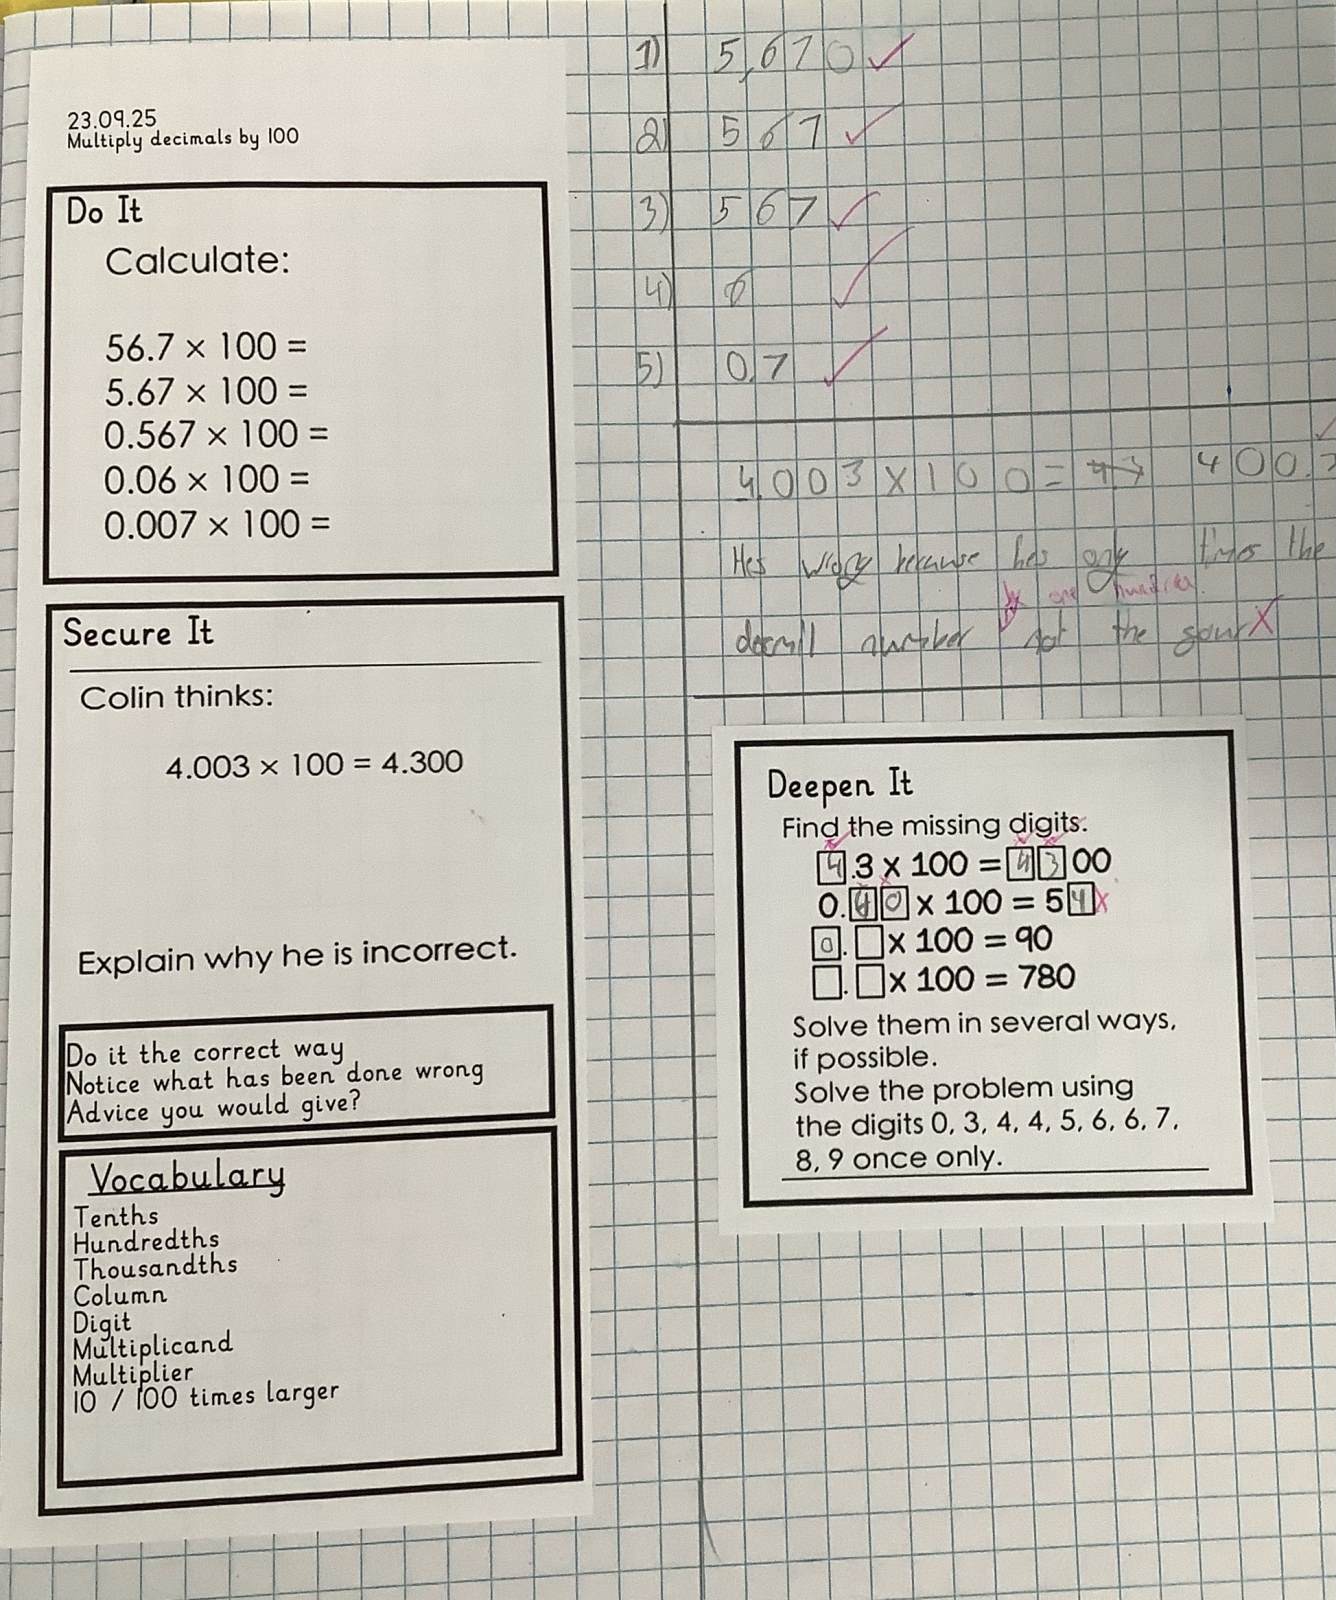 23.09.25
Multiply decimals by 100
Do It
Calculate:
56.7 × 100 =
5.67 × 100 =
0.567 × 100 =
0.06 × 100 =
0.007 × 100 =
Secure It
Colin thinks:
4.003 × 100 = 4.300
Explain why he is incorrect.
Do it the correct way
Notice what has been done wrong
Advice you would give?
Vocabulary
Tenths
Hundredths
Thousandths
Column
Digit
Multiplicand
Multiplier
10 / 100 times larger
1) 5,670
2) 567
3) 567
4) 6
5) 0.7
4.003 × 100 = 400.3
Hes because hes only times the
by one hundred
number not the
Deepen It
Find the missing digits.
4.3 × 100 = 4300
0.40 × 100 = 54
0. × 100 = 90
. × 100 = 780
Solve them in several ways,
if possible.
Solve the problem using
the digits 0, 3, 4, 4, 5, 6, 6, 7,
8, 9 once only.